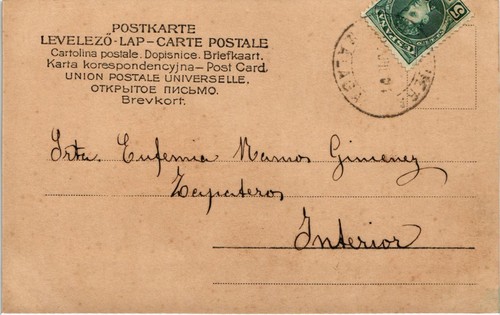 POSTKARTE
LEVELEZŐ-LAP–CARTE POSTALE
Cartolina postale. Dopisnice. Briefkaart.
Karta korespondencyjna–Post Card.
UNION POSTALE UNIVERSELLE.
ОТКРЫТОЕ ПИСЬМО.
Brevkort.
5
Srta. Eufemia Ramos Gimenez
Zapateros
Interior